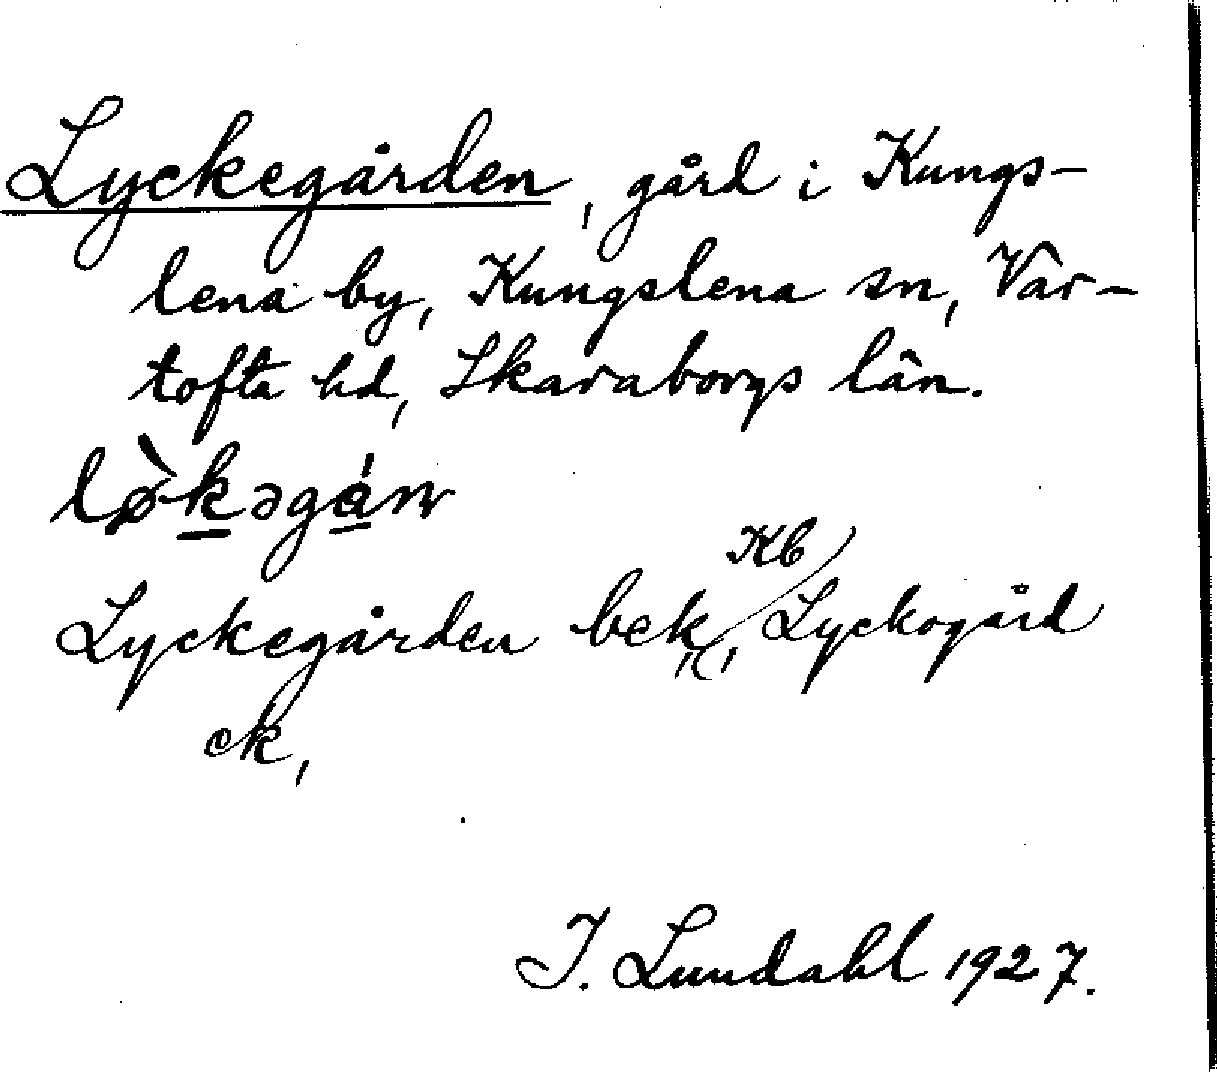 Lyckegården, gård i Kungs-
lena by, Kungslena sn, Var-
tofta hd, Skaraborgs län.
lø̀kəgán
Lyckegården bek, Kb, Lyckogård
ek,
I. Lundahl 1927.